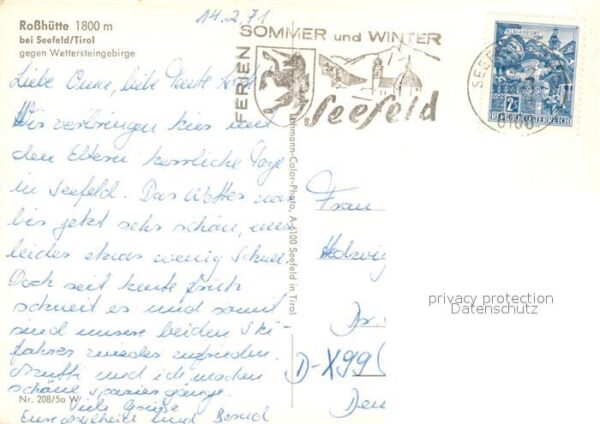 Roßhütte 1800 m
bei Seefeld/Tirol
gegen Wettersteingebirge
14.2.71
FERIEN
SOMMER und WINTER
Seefeld
KLAGENFURT
2S
REPUBLIK ÖSTERREICH
SEEF
6100
Liebe liebe Tante
Wir verbringen hier mit
den Eltern herrliche Tage
in Seefeld. Das Wetter war
bis jetzt sehr schön, nur
leider etwas wenig Schnee.
Doch seit heute früh
schneit es und somit
sind unsere beiden Ski-
fahrer wieder zufrieden.
Mutti und ich machen
schöne Spaziergänge.
Viele Grüße
Eure und Bernd
Nr. 208/5a W
Lehmann-Color-Photo, A-6100 Seefeld in Tirol
Frau
Hedwig
D-X99
privacy protection
Datenschutz